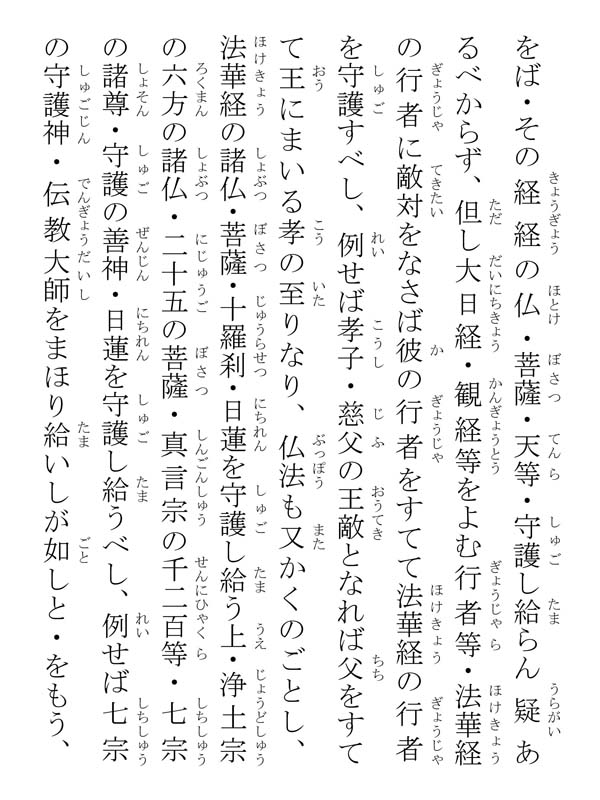 をば・その経経の仏・菩薩・天等・守護し給らん疑あ
るべからず、但し大日経・観経等をよむ行者等・法華経
の行者に敵対をなさば彼の行者をすてて法華経の行者
を守護すべし、例せば孝子・慈父の王敵となれば父をすて
て王にまいる孝の至りなり、仏法も又かくのごとし、
法華経の諸仏・菩薩・十羅刹・日蓮を守護し給う上・浄土宗
の六方の諸仏・二十五の菩薩・真言宗の千二百等・七宗
の諸尊・守護の善神・日蓮を守護し給うべし、例せば七宗
の守護神・伝教大師をまほり給いしが如しと・をもう、